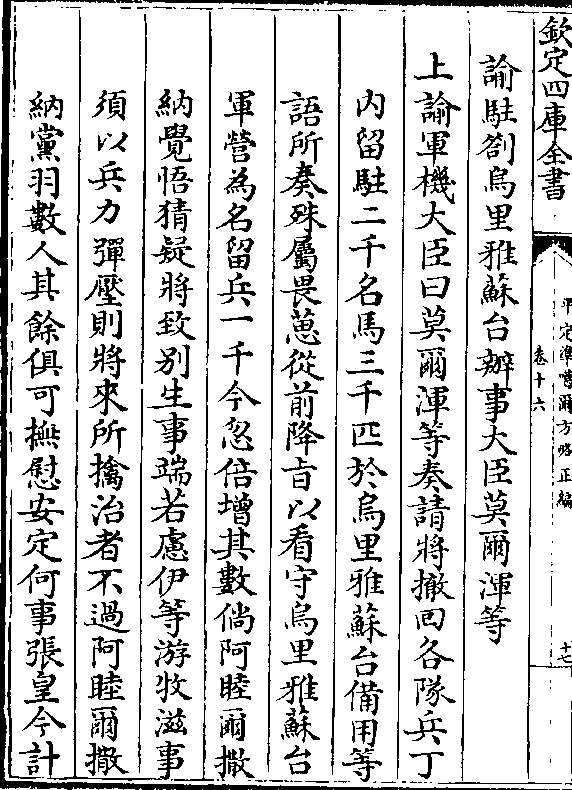 欽定四庫全書
平定準噶爾方略正編
卷十六
十七
諭駐劄烏里雅蘇台辦事大臣莫爾渾等
上諭軍機大臣曰莫爾渾等奏請將撤回各隊兵丁
内留駐二千名馬三千匹於烏里雅蘇台備用等
語所奏殊屬畏葸從前降㫖以看守烏里雅蘇台
軍營為名留兵一千今忽倍增其數倘阿睦爾撒
納覺悟猜疑將致别生事端若慮伊等游牧滋事
須以兵力彈壓則將來所擒治者不過阿睦爾撒
納黨羽數人其餘俱可撫慰安定何事張皇今計